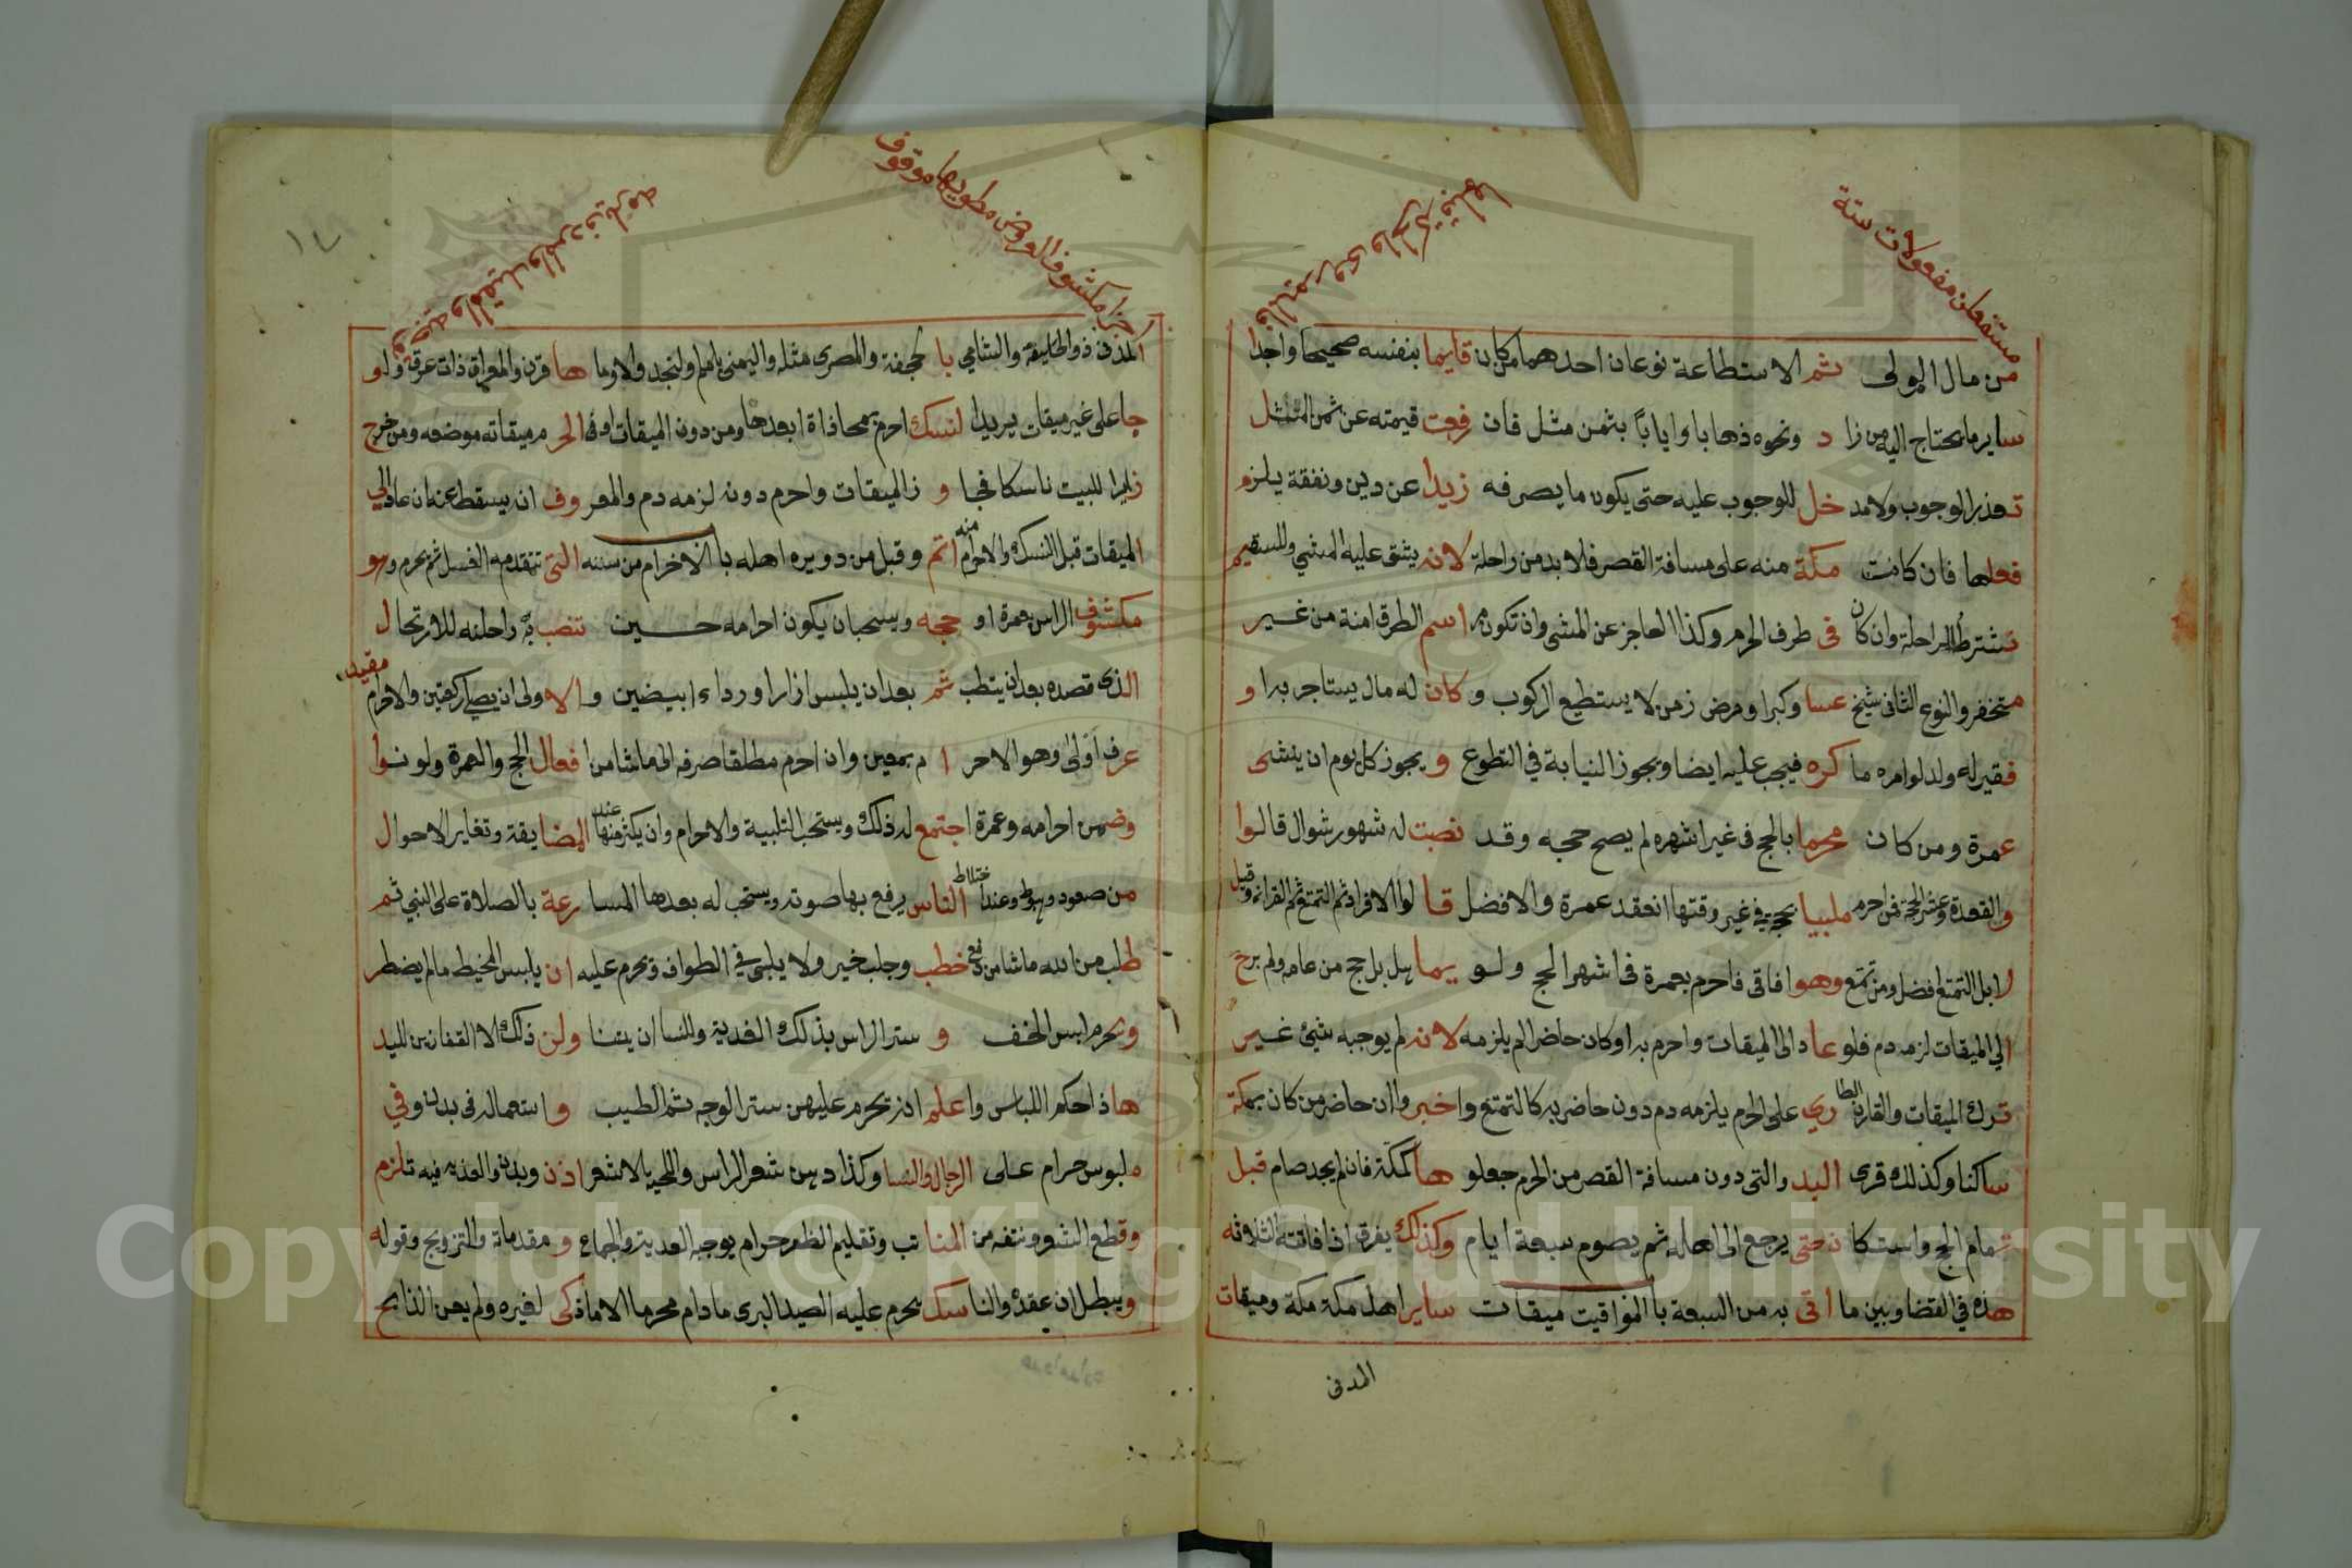 مستفعلن مفعولات ستة
من مال المولى ثم الاستطاعة نوعان احدهما من كان قايما بنفسه صحيحا واجدا
ساير ما يحتاج اليه من زا د ونحوه ذهابا وايابا بثمن مثل فان رفعت قيمته عن ثمن المثل
تعذر الوجوب ولا مد خل للوجوب عليه حتى يكون ما يصرفه زيدا عن دين ونفقة يلزم
فعلها فان كانت مكة منه على مسافة القصر فلا بد من راحلة لانه يشق عليه المشي وللسقيم
تشترط الراحلة وان كان في طرف الحرم وكذا العاجز عن المشي وان تكون اسم الطرق امنة من غير
متخفر والنوع الثانى شيخ عسا وكبر او مرض زمن لا يستطيع الركوب و كان له مال يستاجر به او
فقير له ولد لو امره ما كره فيجب عليه ايضا ويجوز النيابة في التطوع و يجوز كل يوم ان ينشى
عمرة ومن كان محرما بالحج فى غير اشهره لم يصح حجه وقد نصبت له شهور شوال قالوا
والقعدة وعشر الحجة فمن احرم ملبيا بحجة في غير وقتها انعقد عمرة والافضل قا لوا الافراد ثم التمتع ثم القران وقيل
لا بل التمتع افضل ومن تمتع وهوا فاقى فاحرم بعمرة فى اشهر الحج ولو يما بل حج من عامه ولم يرح
الي الميقات لزمه دم فلو عاد الى الميقات واحرم به او كان حاضرا لم يلزمه لانه لم يوجبه شيئ غير
ترك الميقات والقارن الطا ري على الحرم يلزمه دم دون حاضريه كالتمتع واخبر وا ان حاضر من كان بمكة
ساكنا وكذلك قرى البد والتى دون مسافة القصر من الحرم جعلو ها كمكة فان لم يجد صام قبل
تمام الحج واستكا ن حتى يرجع الى اهله ثم يصوم سبعة ايام وكذلك يفرق اذا فاتته الثلاثه
هذه في القضا وبين ما اتى به من السبعة باب المواقيت ميقات ساير اهل مكة مكة وميقات
المدنى
مكشوف العروض مطويها موقوف
المدنى ذو الحليفة والشامي با لجحفة والمصرى مثله واليمنى يلملم ولنجد والاوما ها قرن والعراق ذات عرق ولو
جا على غير ميقات يريدا لنسك احرم بمحاذاة ابعدها ومن دون الميقات او فى الحر م ميقاته موضعه ومن خرج
زايرا للبيت ناسكا فجا و ز الميقات واحرم دونه لزمه دم والمعر وف انه يسقط عنه ان عاد الي
الميقات قبل النسك والاحرام منه اتم وقبل من دويره اهله باب الاحرام من سننه التى تتقدمه الغسل ثم يحرم وهو
مكشوف الراس عمرة او حجه ويستحب ان يكون احرامه حين تنصب به راحلته للارتحال
الذى قصده بعد ان يتطب ثم بعد ان يلبس ازارا ورداء ابيضين والا ولى ان يصلي ركعتين والاحرام مقيد
عرف اولى وهو الاحر ا م بمعين وان احرم مطلقا صرفه الى ما شا من افعال الحج والعمرة ولو نوا
وضمن احرامه وعمرة اجتمع له ذلك ويستحب التلبية والاحرام وان يكثر منها عند المضايقة وتغاير الاحوال
من صعود وهبوط وعند اختلاط الناس يرفع بها صوته ويستحب له بعدها المسا رعة بالصلاة على النبي ثم
طلب من الله ما شا من دفع خطب وجلب خير ولا يلبى في الطواف ويحرم عليه ان يلبس المخيط ما لم يضطر
ويحرم لبس الخف و ستر الراس بذلك الفدية وللنسا ان يفنا ولن ذلك الا القفازين لليد
هاذا حكم اللباس واعلم انه يحرم عليهن ستر الوجه ثم الطيب و استعماله فى بدن وفي
ملبوس حرام على الرجال والنسا وكذا دهن شعر الراس واللحية لا شعر اذن وبدن والفديه فيه تلزم
وقطع الشعر ونتفه من المنا تب وتقليم الظفر حرام يوجب الفدية والجماع و مقدماته والتزويج وقوله
ويبطل ان عقد والناسك يحرم عليه الصيد البرى ما دام محرما الا ما ذكى لغيره ولم يعن الذابح
Copyright © King Saud University